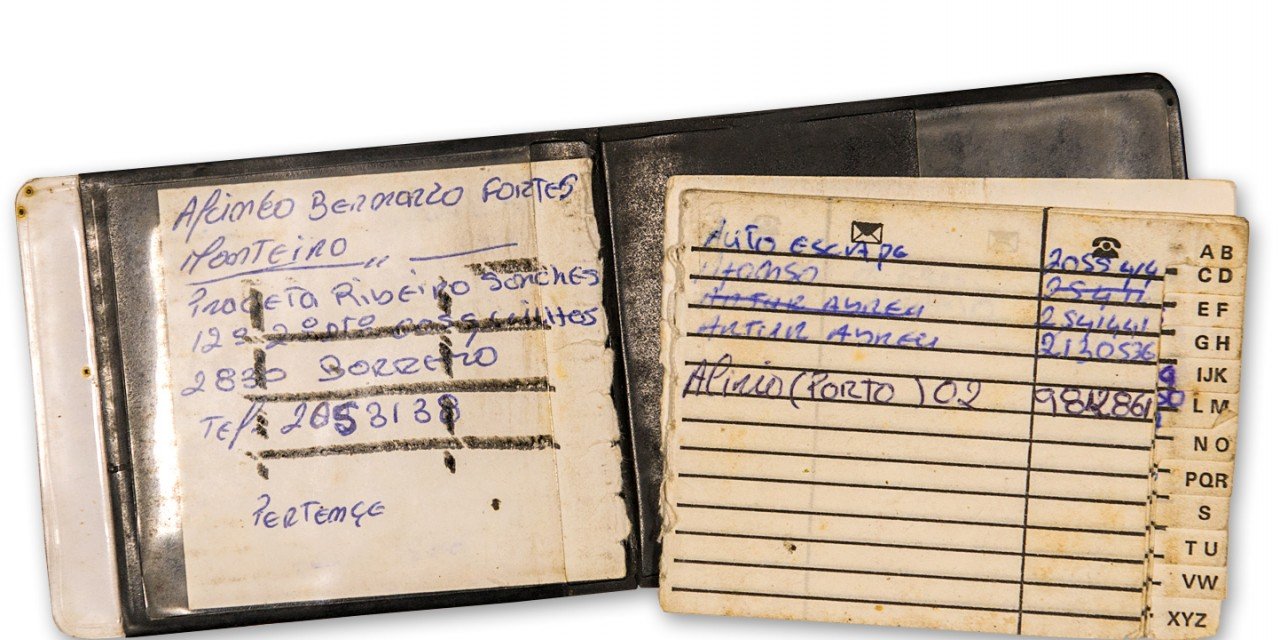 Alcindo BERNARDO FORTES
MONTEIRO
PRACETA RIBEIRO SANCHES
12
2830 BARREIRO
Telf. 2053138
PERTENÇE
AUTO ESCAPE 2055414
AFONSO
ARTUR ABREU 2541441
ARTUR ABREU 2130536
Alirio (PORTO) 02 9812861
A B
C D
E F
G H
IJK
L M
N O
PQR
S
T U
VW
XYZ